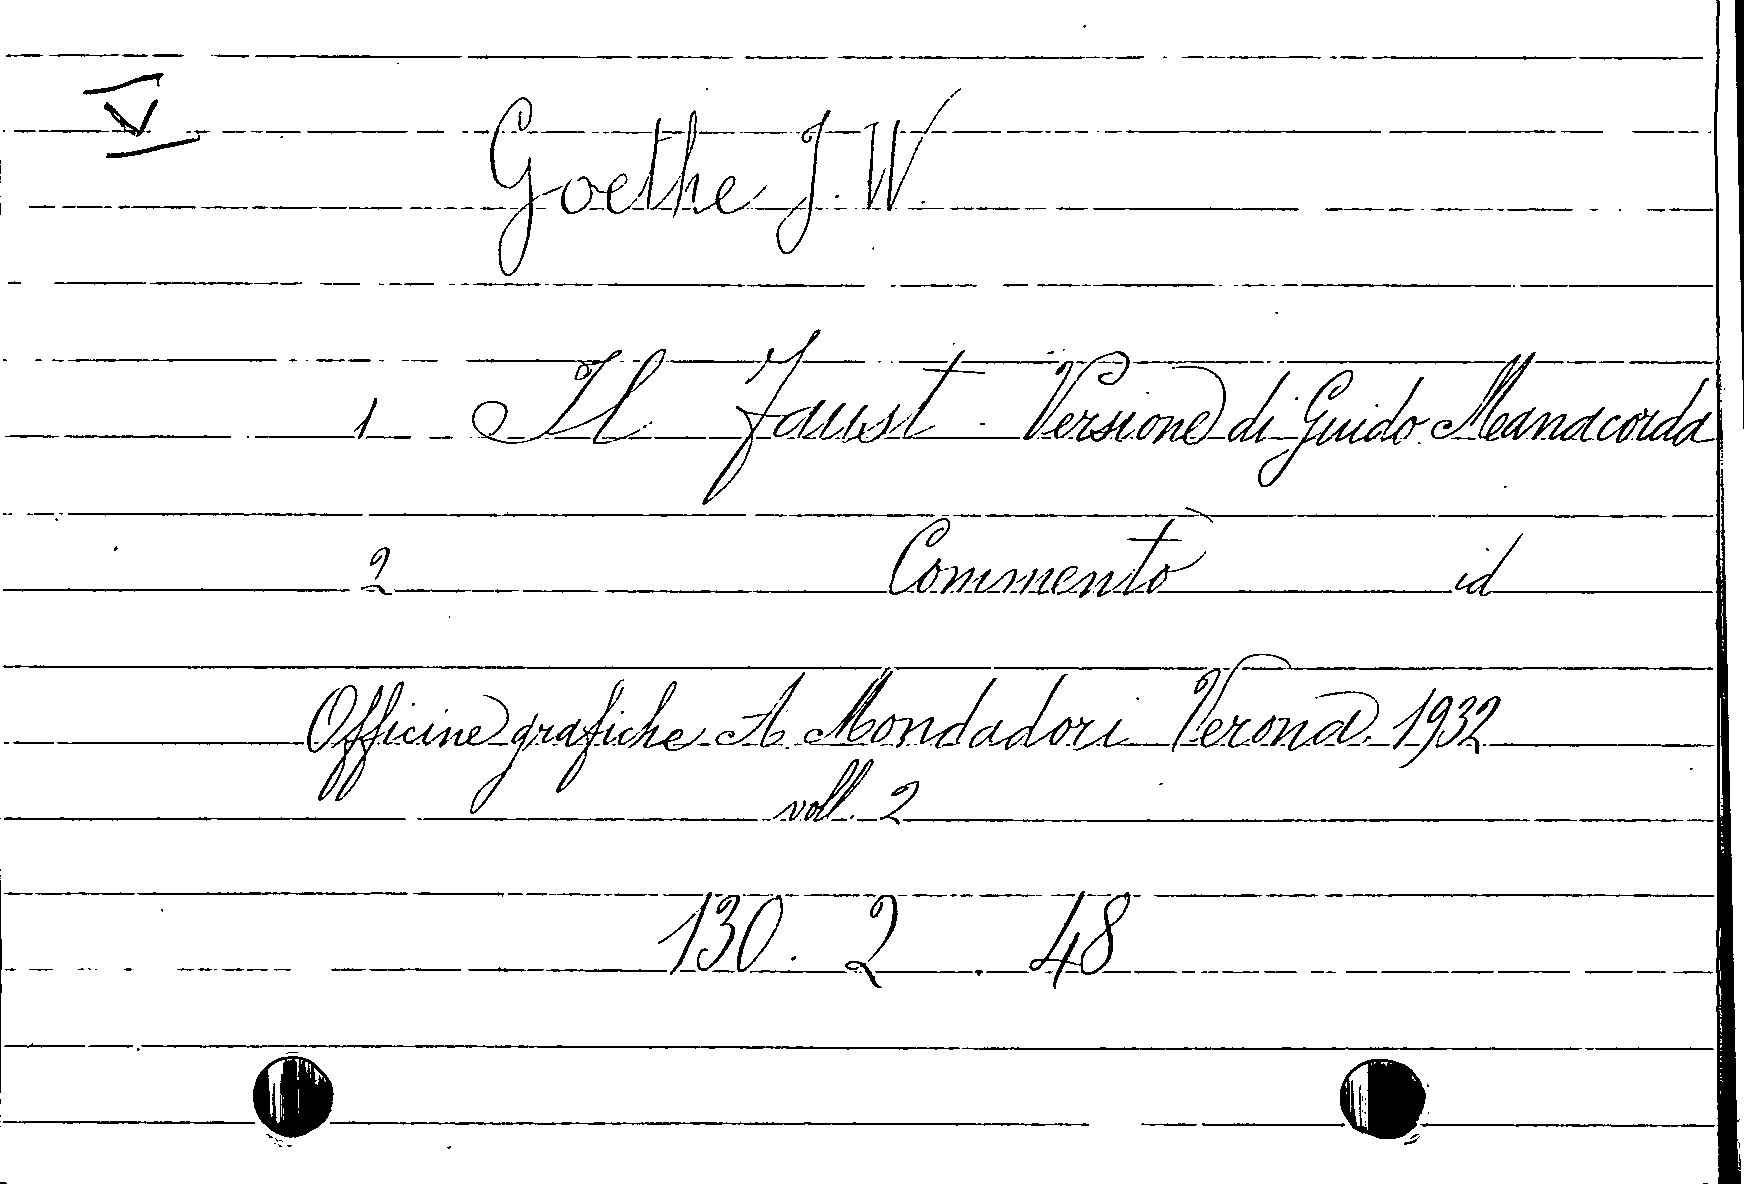 V
Goethe J. W.
1 Il Faust. Versione di Guido Manacorda
2 Commento id
Officine grafiche A Mondadori Verona. 1932
voll. 2
130. 2. 48